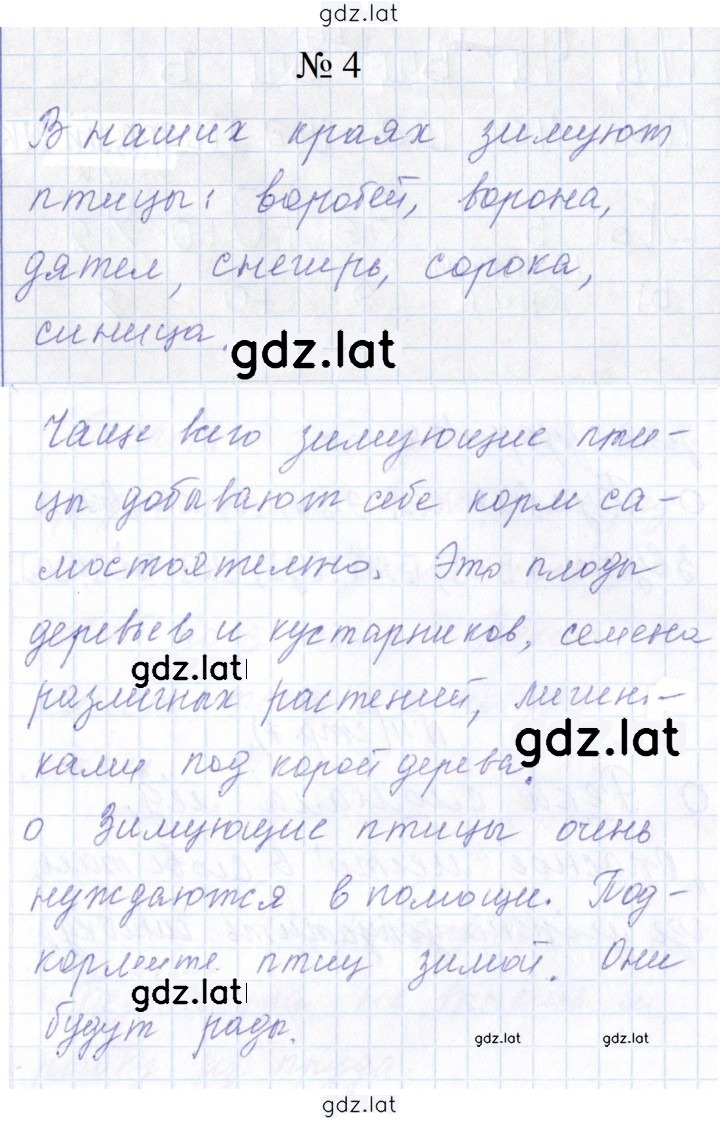 gdz.lat
№ 4
В наших краях зимуют
птицы: воробей, ворона,
дятел, снегирь, сорока,
синица.
gdz.lat
Чаще всего зимующие пти-
цы добывают себе корм са-
мостоятельно. Это плоды
деревьев и кустарников, семена
gdz.lat
различных растений, личин-
ками под корой дерева.
gdz.lat
о Зимующие птицы очень
нуждаются в помощи. Под-
кормите птиц зимой. Они
gdz.lat
будут рады.
gdz.lat gdz.lat
gdz.lat